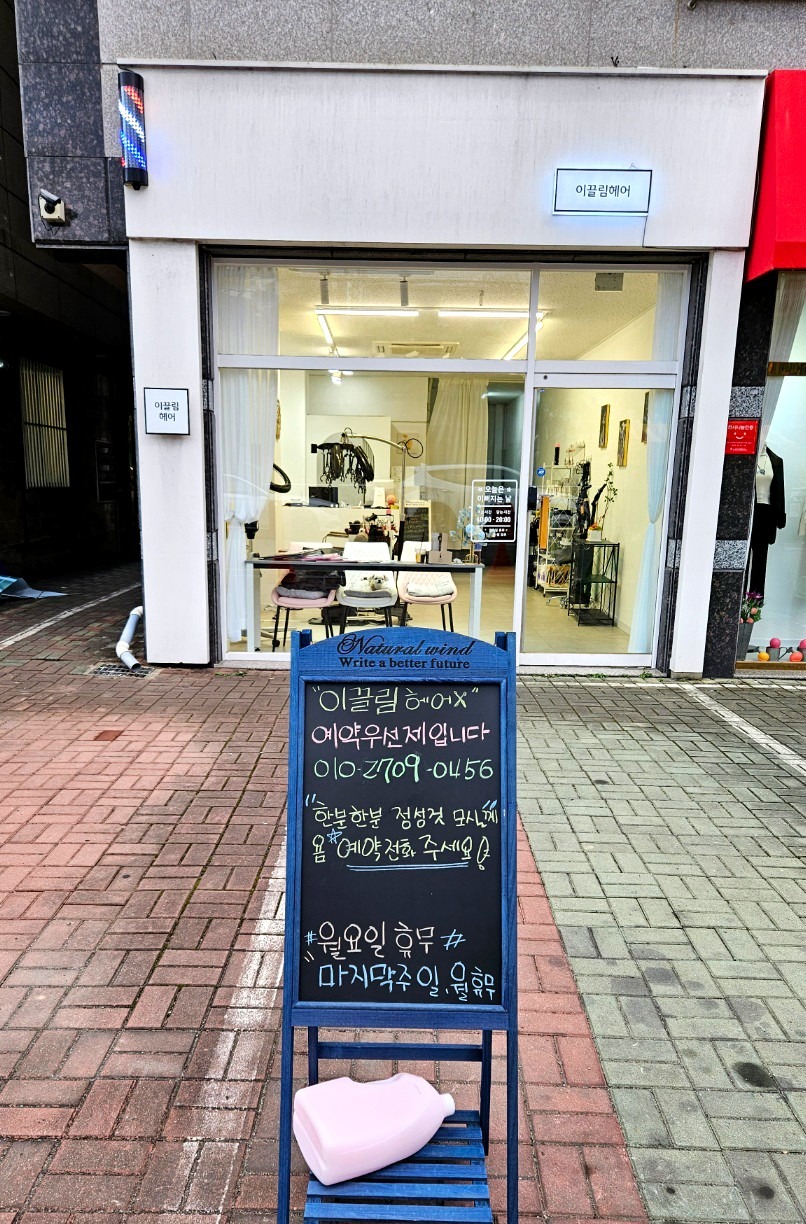 이끌림헤어
이끌림
헤어
오늘은
이뻐지는 날
10:00 - 20:00
Natural wind
Write a better future
"이끌림 헤어"
예약우선제입니다
010-2709-0456
"한분한분 정성껏 모실께
욤 예약전화 주세요
#월요일 휴무#
마지막주 일,월휴무